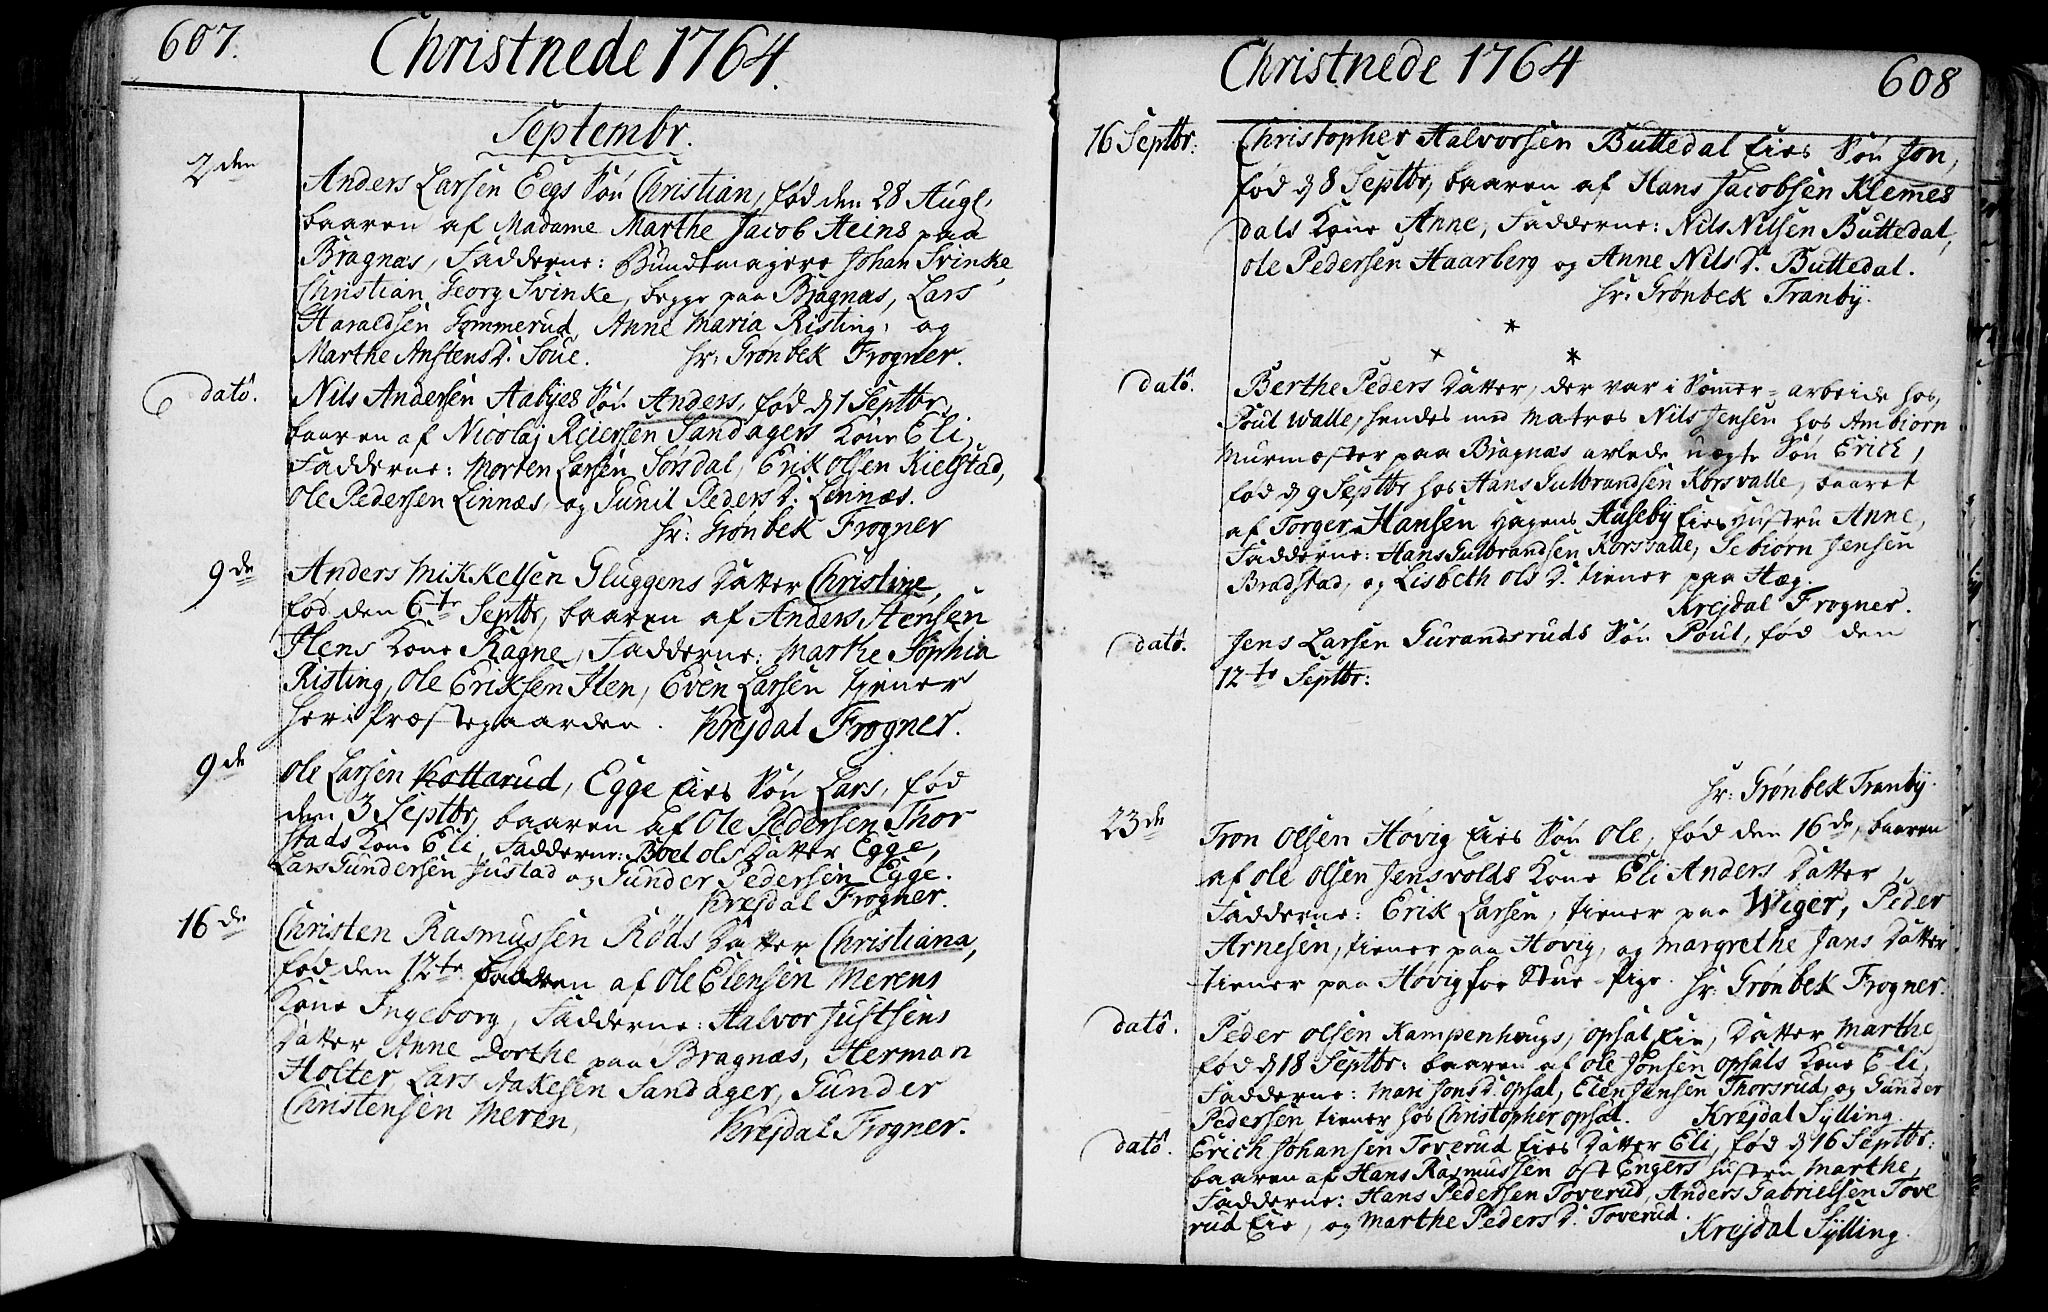 607.
Christnede 1764.
Septembr.
2den
Anders Larsen Eegs Søn Christian, fød den 28 Aug.
baaren af Madame Marthe Jacob Heins paa
Bragnæs, Fadderne: Bundtmagere Johan Svinke,
Christian Georg Svinke, begge paa Bragnæs, Lars
Haraldsen Gommerud, Anne Maria Risting, og
Marthe Anstens D. Soue. Hr: Grönbek Frogner.
dato.
Nils Andersen Aabyes Søn Anders, fød d 1 Septbr,
baaren af Nicolaj Reiersen Sandagers Kone Eli,
Fadderne: Morten Larsen Sørsdal, Erik Olsen Kielstad,
Ole Pedersen Linnæs, og Gunil Peders D. Linnæs.
Hr: Grönbek Frogner
9de
Anders Mikkelsen Gluggens Datter Christine,
fød den 6te Septbr, baaren af Anders Hensen
Ilens Kone Ragne, Fadderne: Marthe Sophia
Risting, Ole Eriksen Ilen, Even Larsen tjener
her i Præstegaarden. Krejdal Frogner.
9de
Ole Larsen Kottarud, Egge Eies Søn Lars, fød
den 3 Septbr, baaren af Ole Pedersen Thor
stads Kone Eli, Fadderne: Boel Ols Datter Egge,
Lars Gundersen Justad og Gunder Pedersen Egge.
Krejdal Frogner.
16de
Christen Rasmussen Röds Datter Christiana,
fød den 12te baaren af Ole Elensen Merens
Kone Ingeborg, Fadderne: Halvor Justsens
Datter Anne Dorthe paa Bragnæs, Herman
Holter, Lars Aakesen Sandager, Gunder
Christensen Meren,
Krejdal Frogner.
Christnede 1764
608
16 Septbr:
Christopher Halvorsen Buttedal Eies Søn Jon,
fød d 8 Septbr, baaren af Hans Jacobsen Klemes
dals Kone Anne, Fadderne: Nils Nilsen Buttedal,
Ole Pedersen Haarberg og Anne Nils D. Buttedal.
Hr: Grönbek Tranby.
dato.
Berthe Peders Datter, der var i Somer=arbeide hos
Poul Walle, hendes med Matros Nils Jensen hos Ambiørn
Murmester paa Bragnæs avlede uægte Søn Erich,
fød d 9 Septbr hos Hans Gulbrandsen Korsvalle, baaret
af Torger Hansen Hagens Huseby Eies Hustru Anne,
Fadderne: Hans Gulbrandsen Korsvalle, Sebiørn Jensen
Bradstad, og Lisbeth Ols D. tiener paa Hæg.
Krejdal Frogner.
dato.
Jens Larsen Gurandsruds Søn Poul, fød den
12te Septbr:
Hr: Grönbek Tranby.
23de
Tron Olsen Hövig Eies Søn Ole, fød den 16de, baaren
af Ole Olsen Jensvolds Kone Eli Anders Datter,
Fadderne: Erik Larsen, tiener paa Wiger, Peder
Arnesen, tiener paa Hovig, og Margrethe Jans Datter
tiener paa Hövig for Stue-Pige. Hr: Grönbek Frogner.
dato.
Peder Olsen Kampenhougs, Opsal Eie, Datter Marthe
fød d 18 Septbr: baaren af Ole Jonsen Opsals Kone Eli,
Fadderne: Mari Jons D. Opsal, Elen Jensen Thorsrud, og Gunder
Pedersen tiener hos Christopher Opsal. Krejdal Sylling.
dato.
Erich Johansen Toverud Eies Datter Eli, fød d 16 Septbr:
baaren af Hans Rasmussen Øst Engers Hustru Marthe,
Fadderne: Hans Pedersen Toverud, Anders Gabrielsen Tove
rud Eie, og Marthe Peders D. Toverud.
Krejdal Sylling.